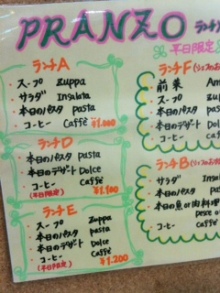 PRANZO ランチ
平日限定
ランチA
・スープ Zuppa
・サラダ Insalata
・本日のパスタ pasta
・コーヒー Caffé
¥1.000
ランチD
・本日のパスタ pasta
・本日のデザート Dolce
・コーヒー Caffé
(平日限定) ¥1.100
ランチE
・スープ Zuppa
・本日のパスタ pasta
・本日のデザート Dolce
・コーヒー Caffé
(平日限定) ¥1.200
ランチF
・前菜
・スープ
・本日の
・本日の
・コーヒー
ランチB
・サラダ Ins
・本日のパスタ
・本日の魚or肉料理
pesce o
・コーヒー Caff